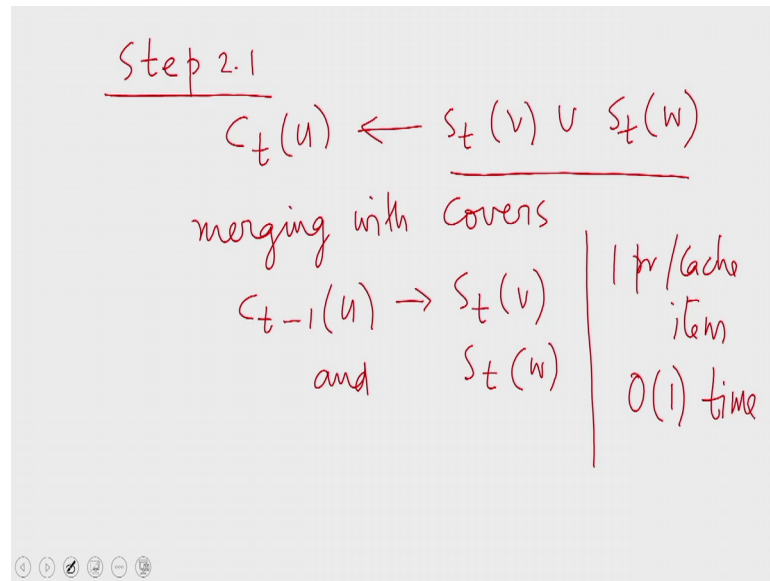 Step 2.1
C_t(u) ← S_t(v) ∪ S_t(w)
merging with covers
C_{t-1}(u) → S_t(v)
and S_t(w)
1 pr/cache
item
O(1) time